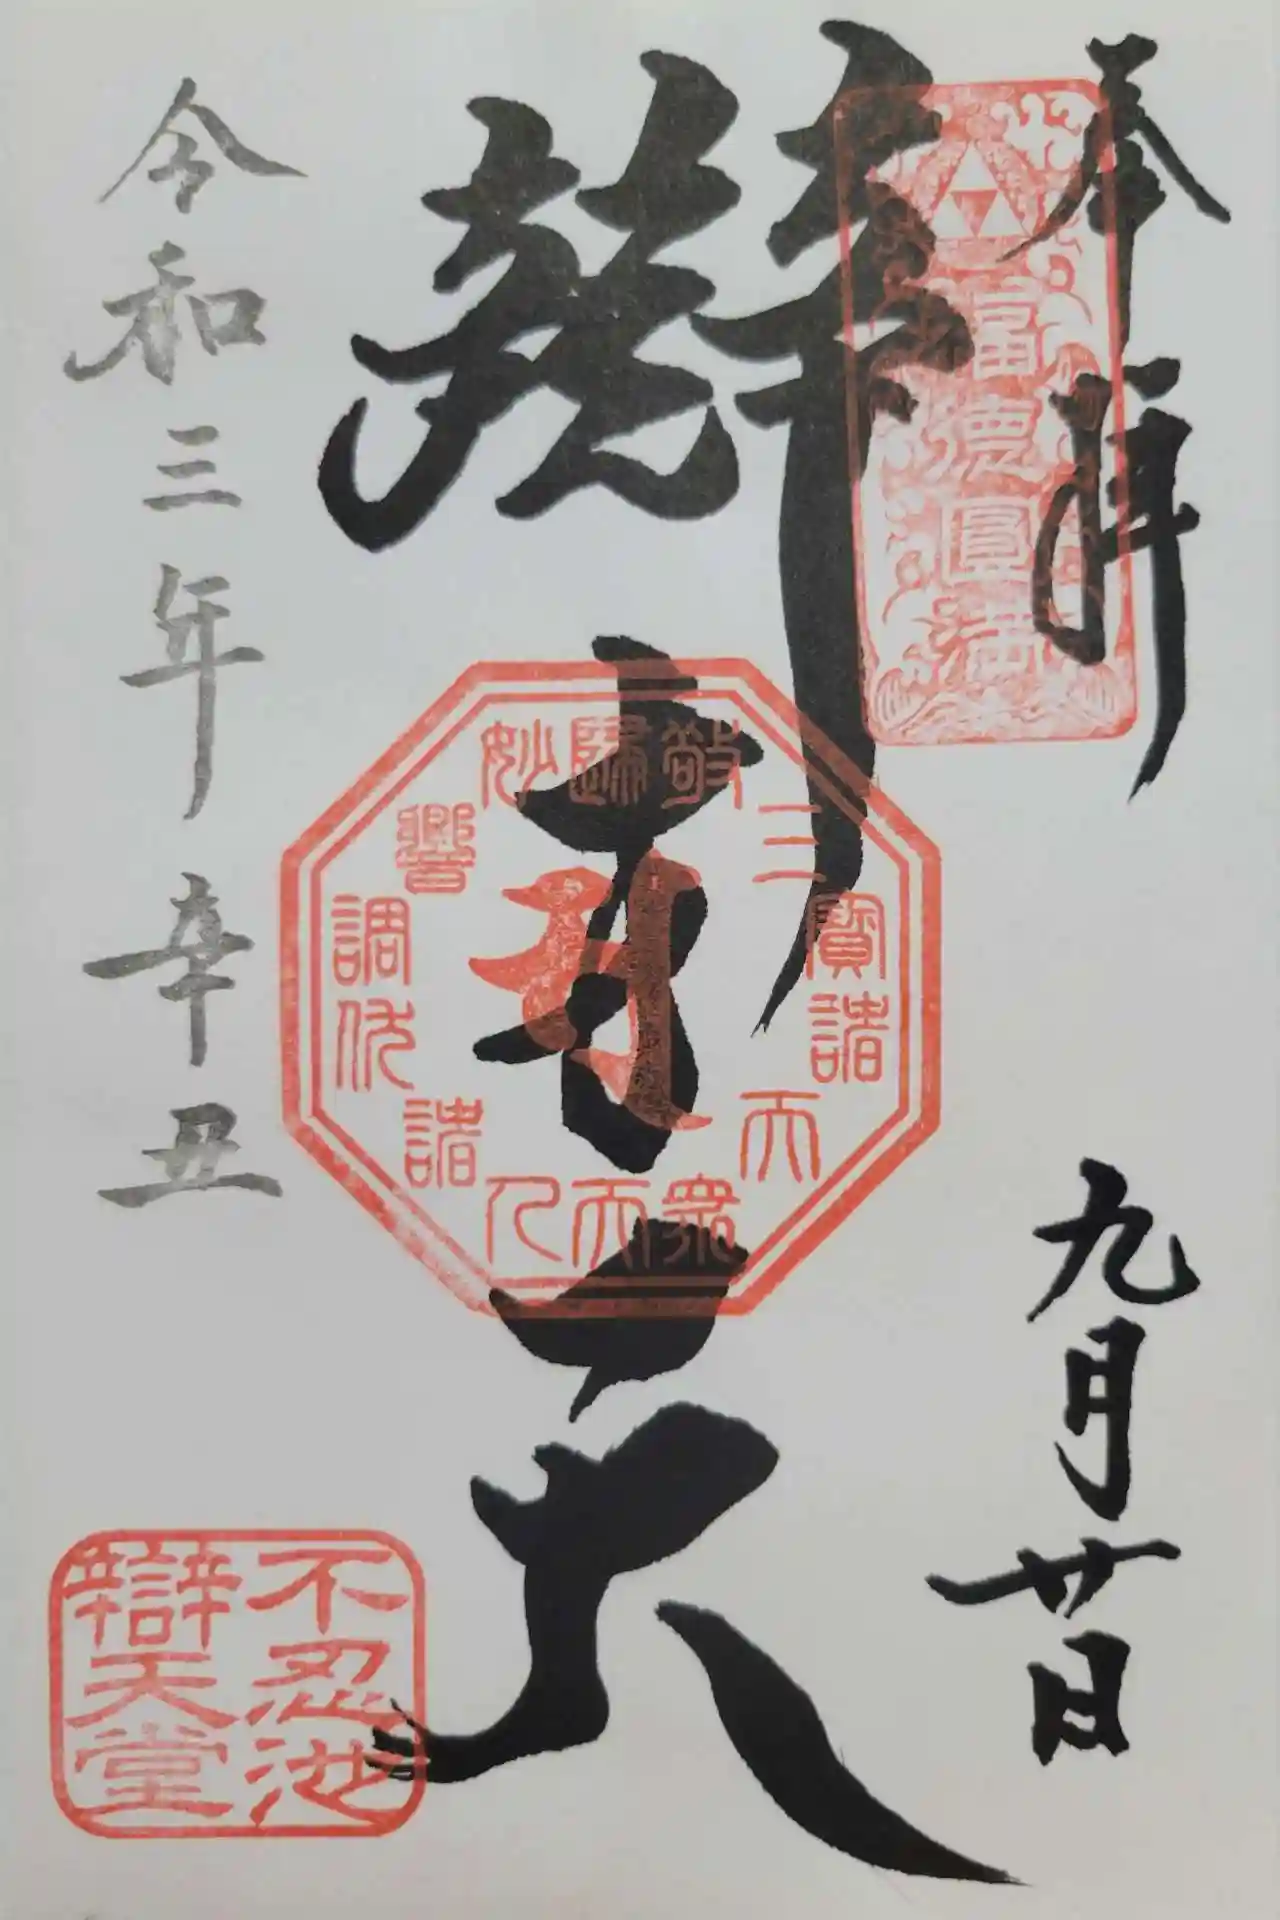 奉拝
九月廿日
富徳圓満
辯才天
歸敬三寶諸天衆
妙響調伏諸人天
令和三年辛丑
不忍池
辯天堂